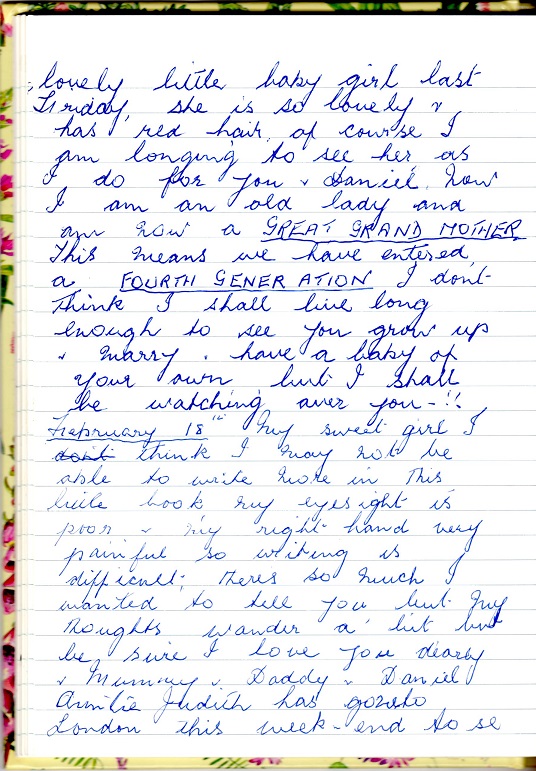 lovely little baby girl last
Friday, she is so lovely &
has red hair, of course I
am longing to see her as
I do for you & Daniel, now
I am an old lady and
am now a GREAT GRAND MOTHER.
This means we have entered
a FOURTH GENERATION I dont
think I shall live long
enough to see you grow up
& marry, have a baby of
your own but I shall
be watching over you - !!
Fepruary 18th My sweet girl I
dont think I may not be
able to write more in this
little book my eyesight is
poor & my right hand very
painful so writing is
difficult; Theres so much I
wanted to tell you but my
thoughts wander a bit but
be sure I love you dearly
& Mummy & Daddy & Daniel
Auntie Judith has gone to
London this week-end to se